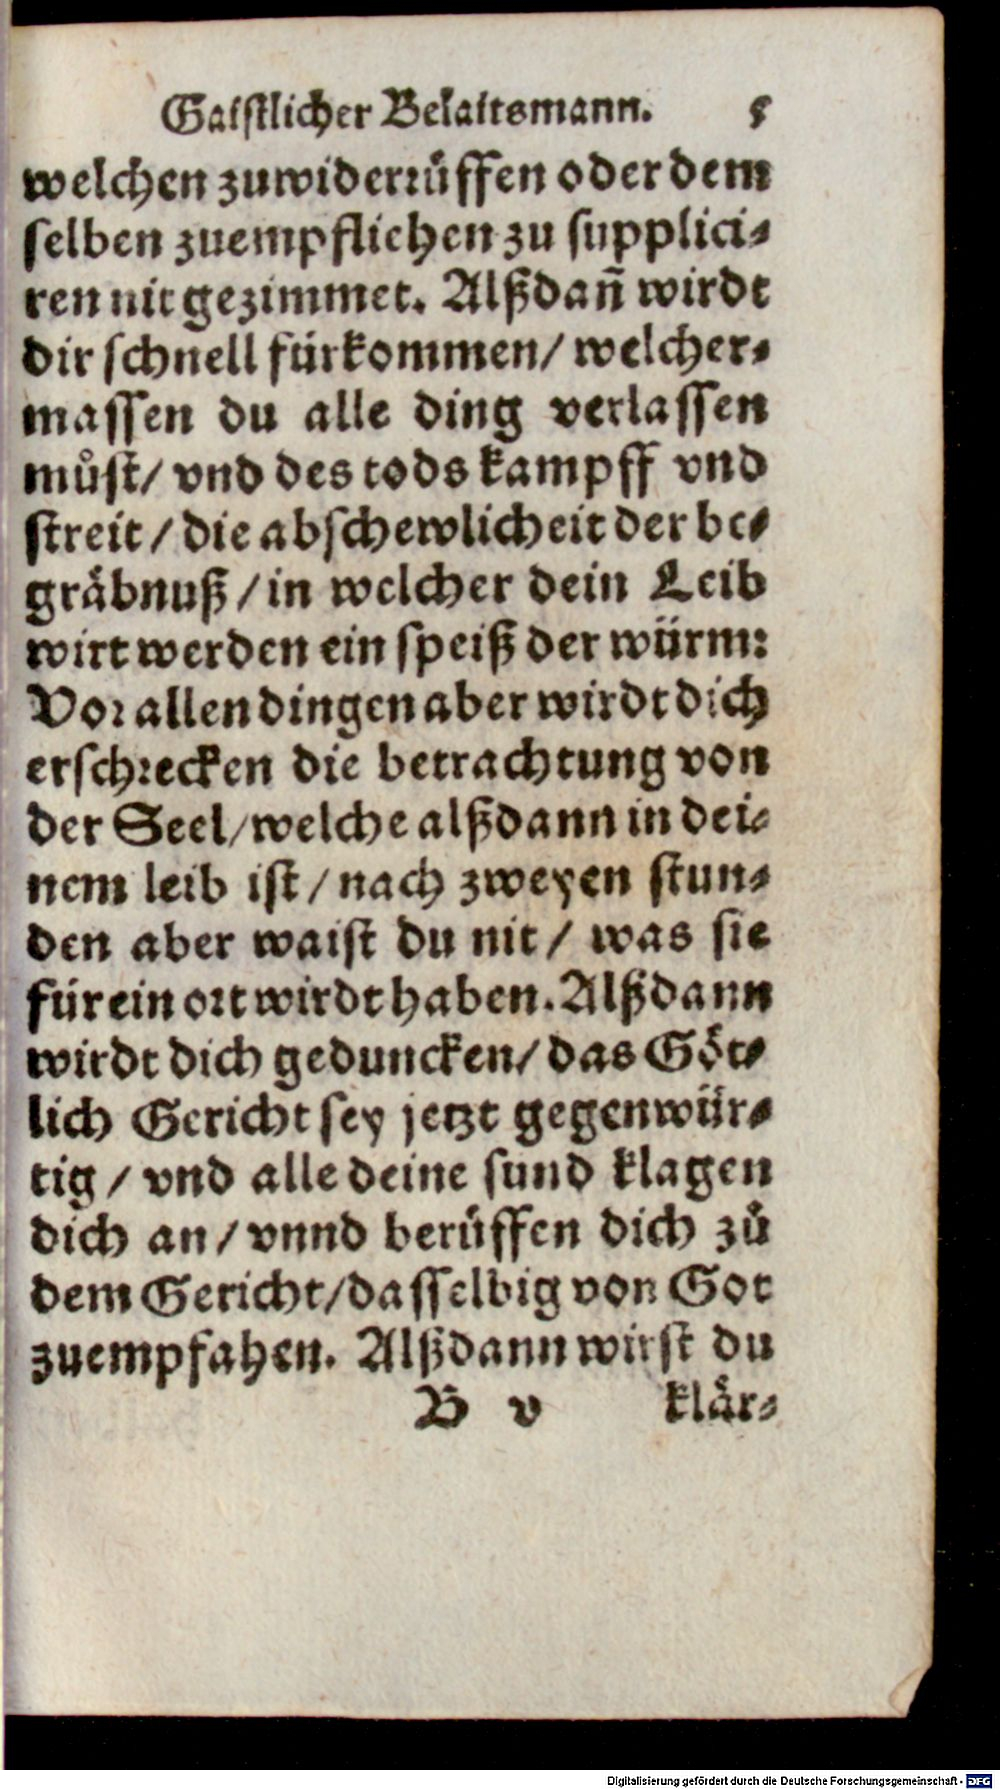 Gaistlicher Belaitsmann. 5
welchen zuwiderrüffen oder dem
selben zuempfliehen zu supplici⸗
ren nit gezimmet. Alßdañ wirdt
dir schnell fürkommen/ welcher⸗
massen du alle ding verlassen
můst/ vnd des tods kampff vnd
streit/ die abschewlicheit der be⸗
gräbnuß/ in welcher dein Leib
wirt werden ein speiß der würm:
Vor allen dingen aber wirdt dich
erschrecken die betrachtung von
der Seel/ welche alßdann in dei⸗
nem leib ist/ nach zweyen stun⸗
den aber waist du nit/ was sie
für ein ort wirdt haben. Alßdann
wirdt dich geduncken/ das Göt⸗
lich Gericht sey jetzt gegenwür⸗
tig/ vnd alle deine sund klagen
dich an/ vnnd berüffen dich zů
dem Gericht/ dasselbig von Got
zuempfahen. Alßdann wirst du
B v klär⸗
Digitalisierung gefördert durch die Deutsche Forschungsgemeinschaft - DFG